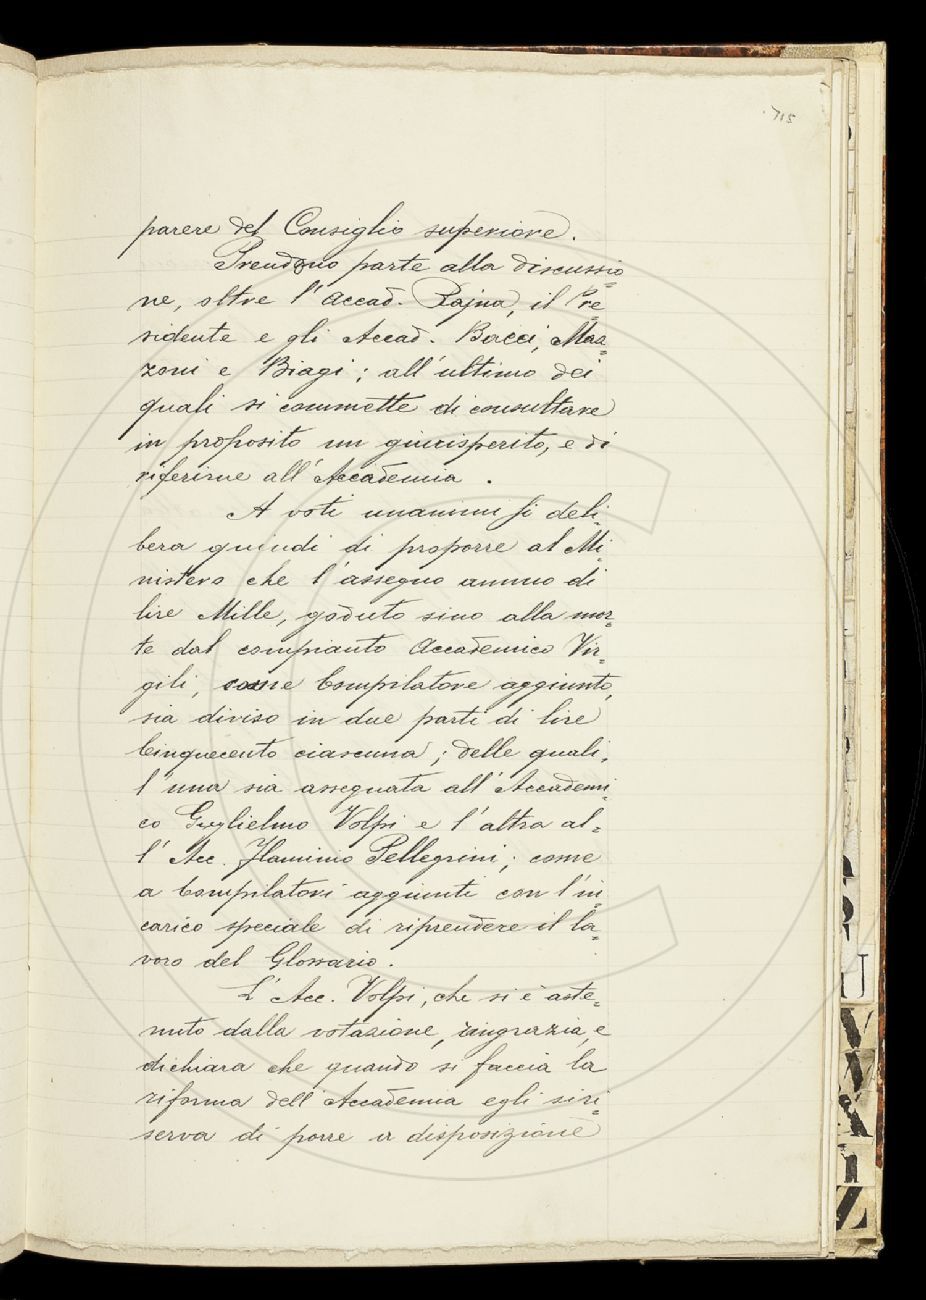 715
parere del Consiglio superiore.
Prendono parte alla discussio=
ne, oltre l'Accad. Rajna, il Pre=
sidente e gli Accad. Bacci, Maz=
zoni e Biagi; all'ultimo dei
quali si commette di consultare
in proposito un giurisperito, e di
riferirne all'Accademia.
A voti unanimi si deli=
bera quindi di proporre al Mi=
nistero che l'assegno annuo di
lire Mille, goduto sino alla mor=
te dal compianto Accademico Vir=
gili, come Compilatore aggiunto,
sia diviso in due parti di lire
Cinquecento ciascuna; delle quali,
l'una sia assegnata all'Accademi=
co Guglielmo Volpi e l'altra al=
l'Acc. Flaminio Pellegrini; come
a Compilatori aggiunti con l'in=
carico speciale di riprendere il la=
voro del Glossario.
L'Acc. Volpi, che si è aste=
nuto dalla votazione, ringrazia, e
dichiara che quando si faccia la
riforma dell'Accademia egli si ri=
serva di porre a disposizione
U
V
V
X
Z